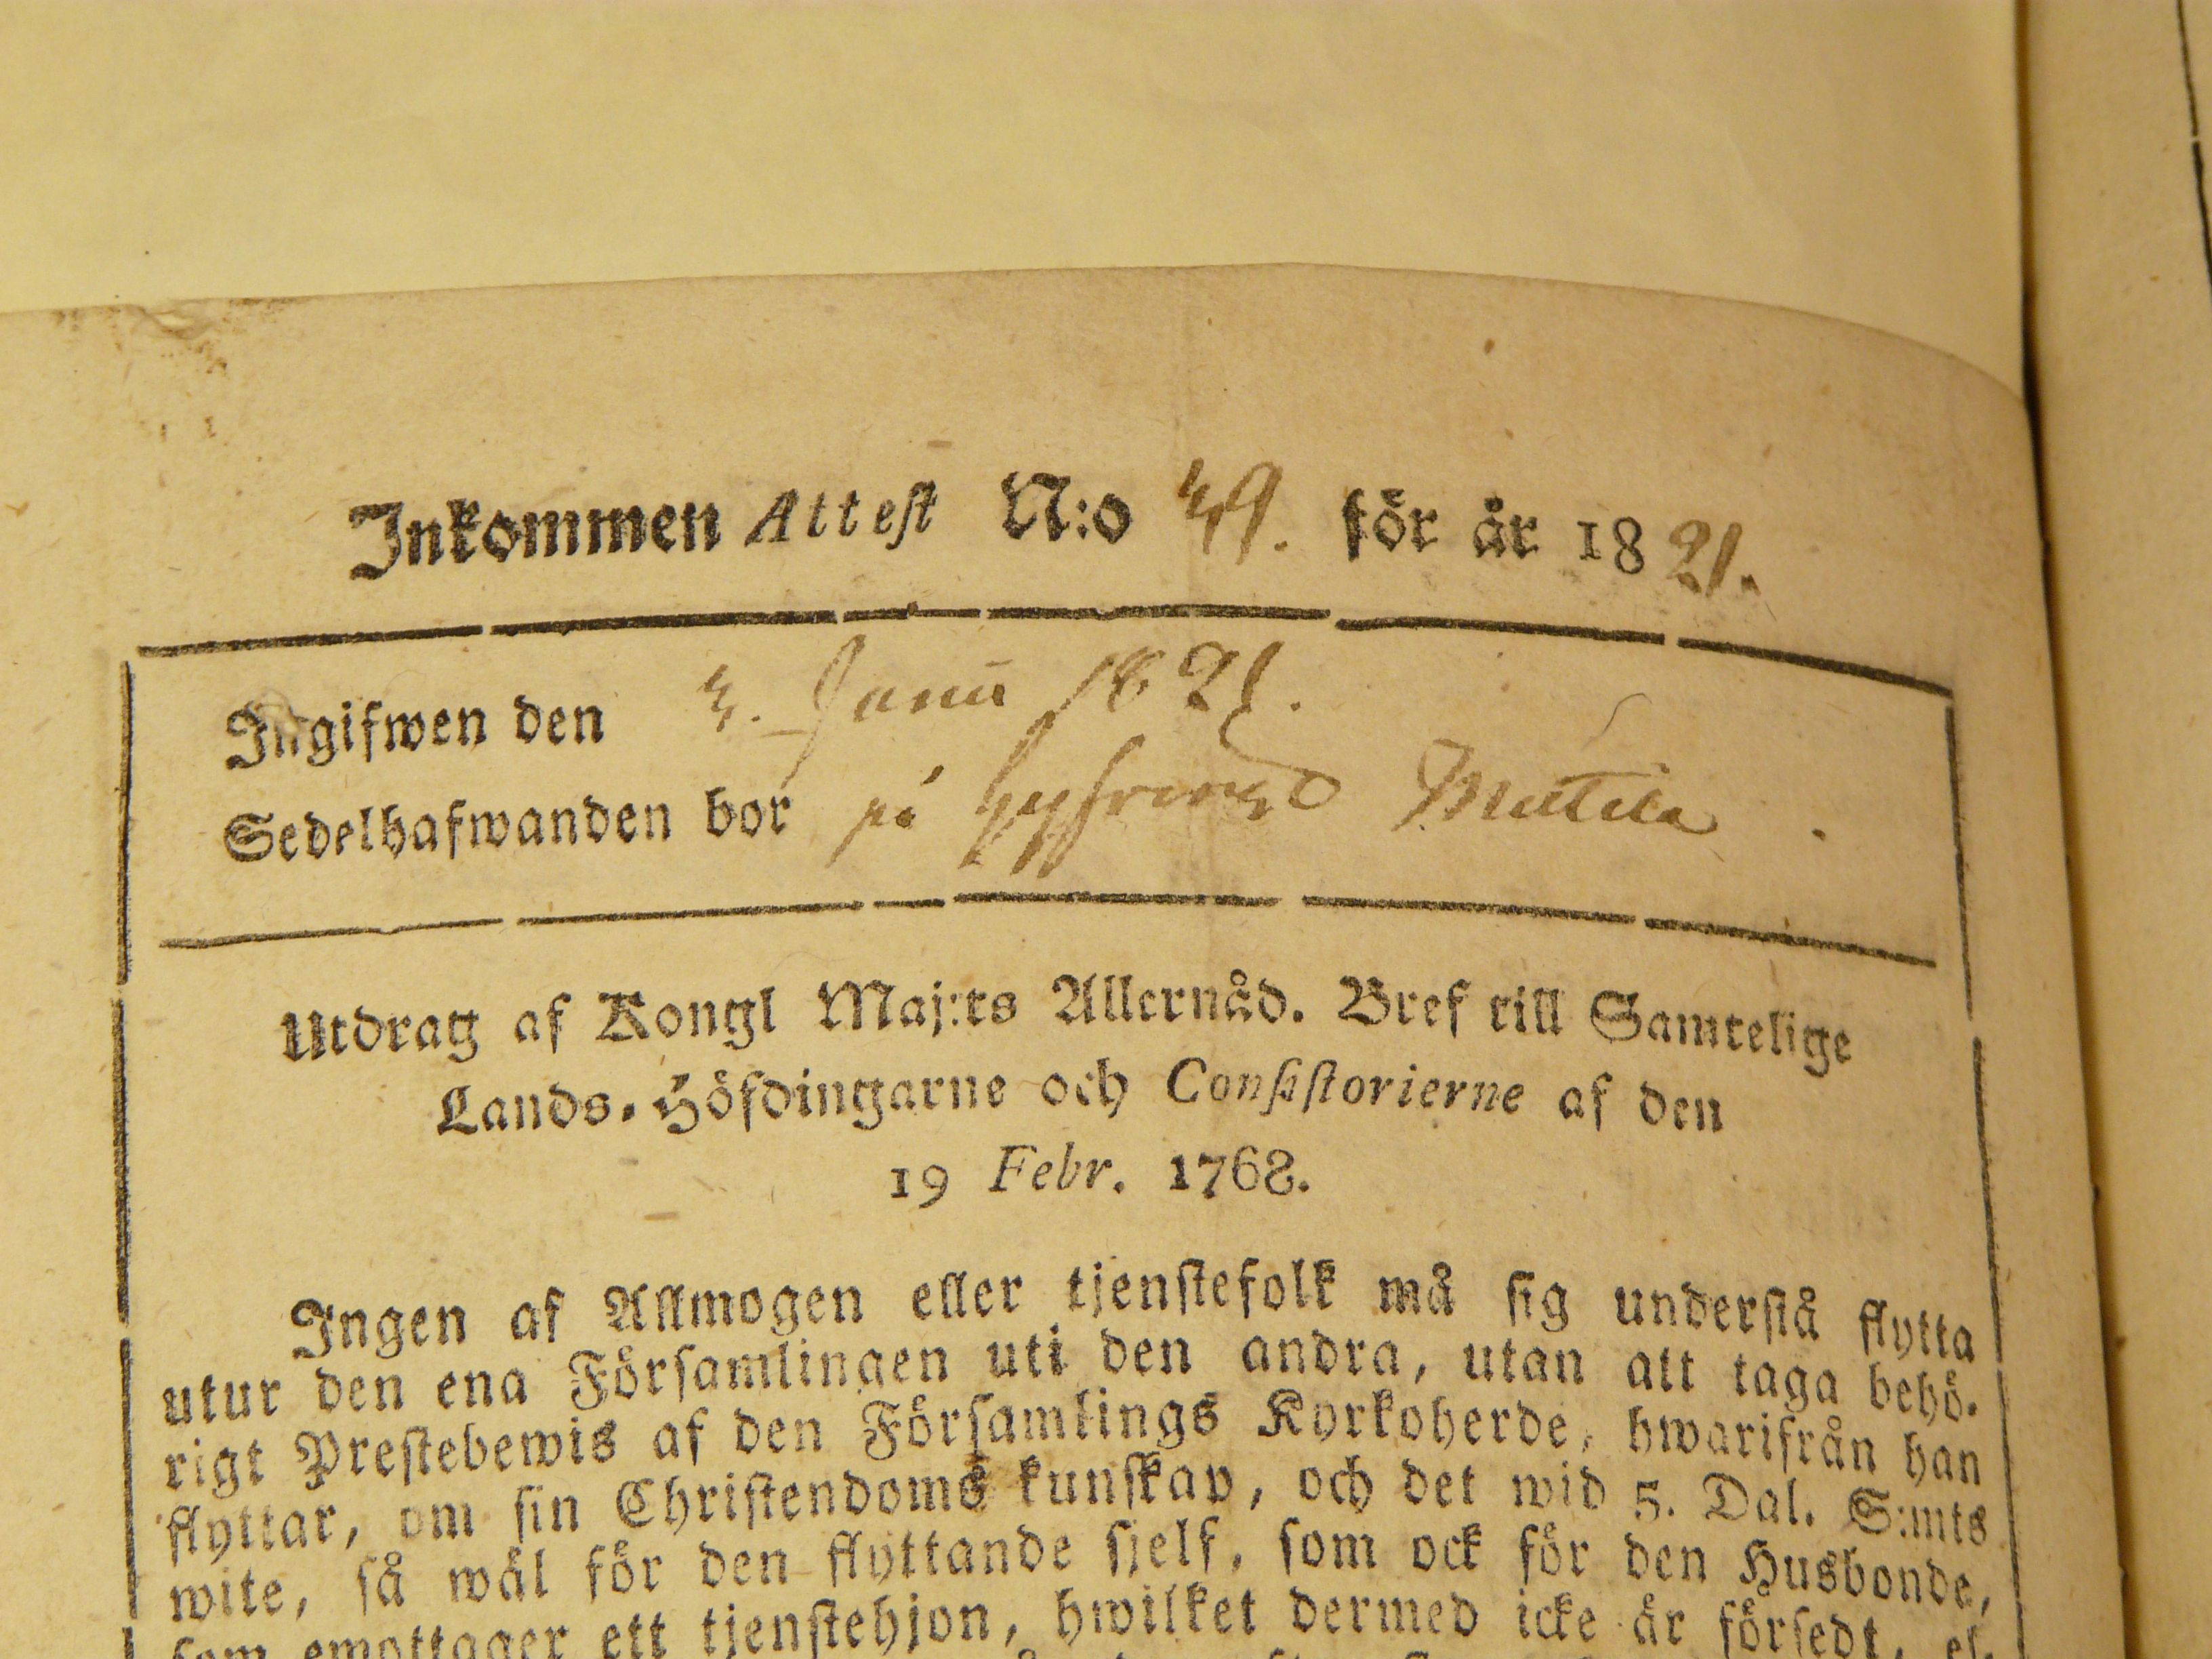 Inkommen Attest N:o 49. för år 1821.
Ingifwen den 4. Janu 1821.
Sedelhafwanden bor på Mattila.
Utdrag af Kongl Maj:ts Allernåd. Bref till Samtelige
Lands-Höfdingarne och Consistorierne af den
19 Febr. 1768.
Ingen af Allmogen eller tjenstefolk må sig understå flytta
utur den ena Församlingen uti den andra, utan att taga behö-
rigt Prestebewis af den Församlings Kyrkoherde, hwarifrån han
flyttar, om sin Christendoms kunskap, och det wid 5. Dal. S:mts
wite, så wäl för den flyttande sjelf, som ock för den Husbonde,
som emottager ett tjenstehjon, hwilket dermed icke är försedt, el-